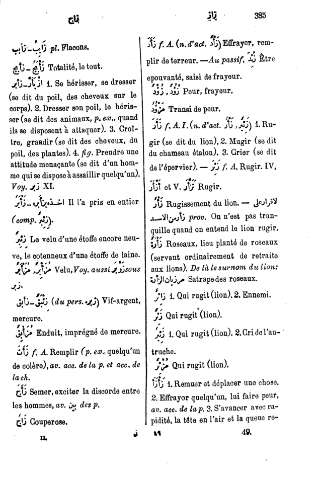 زاج
زار
385
زأب—زآب pl. Flacons.
زأبج—زأبج Totalité, le tout.
1. Se hérisser, se dresser
(se dit du poil, des cheveux sur le
corps). 2. Dresser son poil, le héris-
ser (se dit des animaux, p. ex., quand
ils se disposent à attaquer). 3. Croî-
tre, grandir (se dit des cheveux, du
poil, des plantes). 4. fig. Prendre une
attitude menaçante (se dit d'un hom-
me qui se dispose à assaillir quelqu'un).
Voy. زبر XI.
Il l'a pris en entier
(comp. زئبر).
زئبر Le velu d'une étoffe encore neu-
ve, le cotonneux d'une étoffe de laine.
Velu, Voy. aussi sous
زبر.
زئبق (du pers.) Vif-argent,
mercure.
مزأبق Enduit, imprégné de mercure.
زأت f. A. Remplir (p. ex. quelqu'un
de colère), av. acc. de la p. et acc. de
la ch.
زأج Semer, exciter la discorde entre
les hommes, av. بين des p.
زاج Couperose.
II.
زأد f. A. (n. d'act. زأد) Effrayer, rem-
plir de terreur. — Au passif, زئد Être
épouvanté, saisi de frayeur.
زؤد—زأد Peur, frayeur.
مزؤود Transi de peur.
زأر f. A. I. (n. d'act. زئير, زأر) 1. Ru-
gir (se dit du lion). 2. Mugir (se dit
du chameau étalon). 3. Crier (se dit
de l'épervier). — زئر f. A. Rugir. IV,
أزأر et V. تزأر Rugir.
زأر Rugissement du lion. —
prov. On n'est pas tran-
quille quand on entend le lion rugir.
زأرة Roseaux, lieu planté de roseaux
(servant ordinairement de retraits
aux lions). De là le surnom du lion:
مرزبان الزأرة Satrape des roseaux.
زائر 1. Qui rugit (lion). 2. Ennemi.
زئر Qui rugit (lion).
زئير 1. Qui rugit (lion). 2. Cri de l'au-
truche.
مزئر Qui rugit (lion).
زأزأ 1. Remuer et déplacer une chose.
2. Effrayer quelqu'un, lui faire peur,
av. acc. de la p. 3. S'avancer avec ra-
pidité, la tête en l'air et la queue re-
٤٩
49.